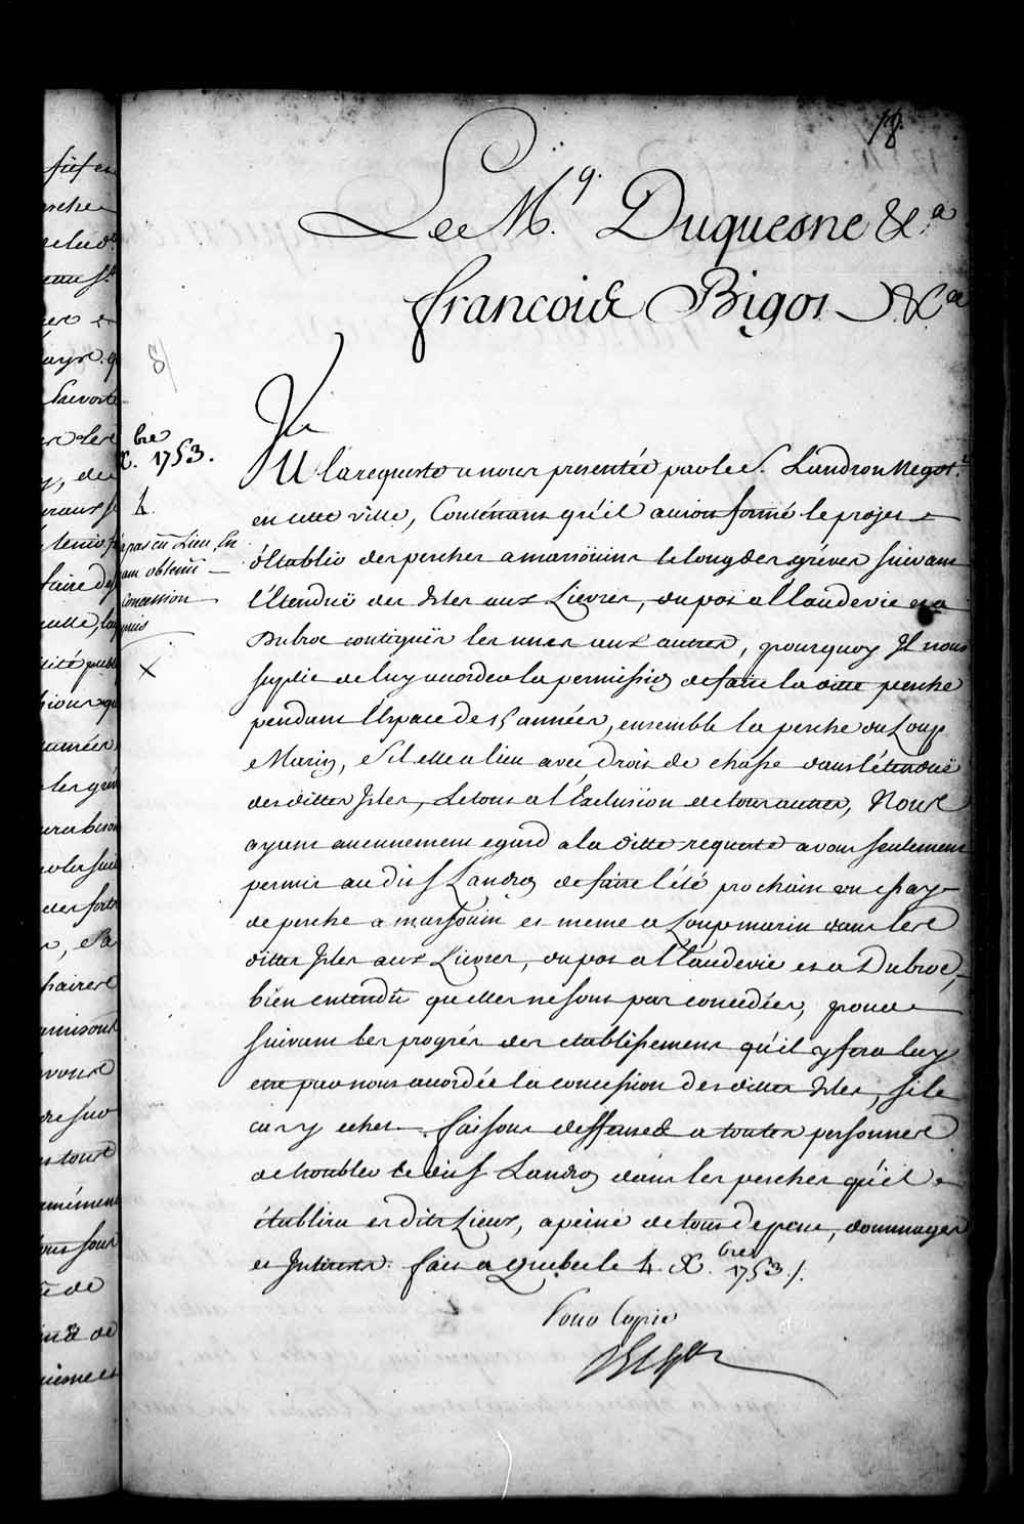 18.
Le M.q. Duquesne &.a
francois Bigot &C.a
8/
bre
X. 1753.
4.
pas eu Lieu, en
ayant obtenu
Concession
puis
X
Vu
VU la requeste a nous presentée par le S. Landron Negot.t
en cette ville, Contenant qu'il auroit formé le projet
d'Etablir des peches a marsoüins le long des gréves suivant
l'Etenduë des Isles aux Lievres, du pot a l'audevie et a
Dubroc contiguës les unes aux autres, pourquoy Il nous
suplie de luy accorder la permission de faire la ditte peche
pendant l'Espace de 15 années, ensemble la peche du Loup
Marin, s'il elle a lieu avec Droit de chasse dans l'étenduë
des dittes Isles, Le tout a l'Exclusion de tout autres, Nous
ayant aucunnement egard a la ditte requeste avons seulement
permis au dit S. Landron de faire l'été prochain un essay
de peche a marsouin et meme a Loup marin dans les
dittes Isles aux Lievres, du pot a l'audevie et a Dubroc,
bien entendu qu'elles ne sont pas concedées, pour
suivant les progrés des etablissements qu'il y fera luy
etre par nous accordée la concession des dittes Isles, si le
cas y echet. faisons deffenses a toutes personnes
de troubler le dit S. Landron dans les peches qu'il
établira es dits Lieux, a peine de tous depens, dommages
et Interests. fait a Quebec le 4. X.bre 1753 /.
Pour Copie
Bigot